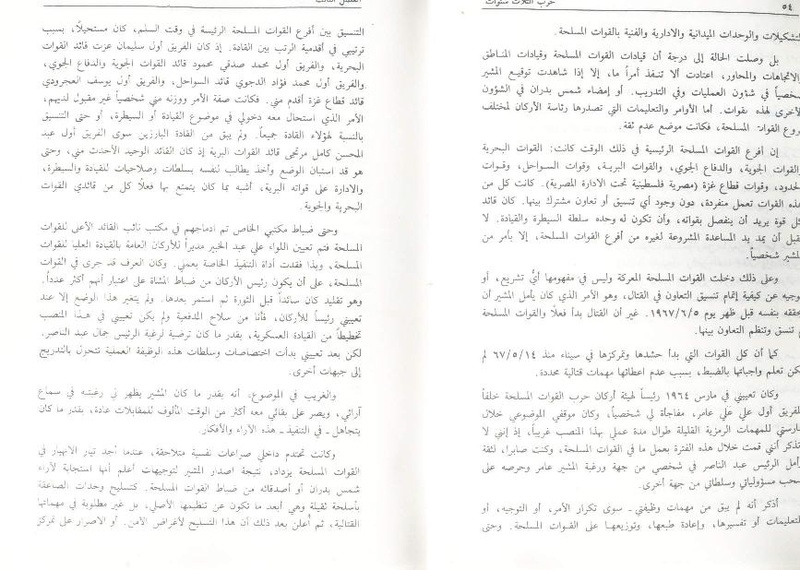 ٥٤
حرب الثلاث سنوات
التشكيلات والوحدات الميدانية والادارية والفنية بالقوات المسلحة.
بل وصلت الحالة إلى درجة أن قيادات القوات المسلحة وقيادات المناطق
والاتجاهات والمحاور، اعتادت ألا تنفذ أمراً ما، إلا إذا شاهدت توقيع المشير
شخصياً في شؤون العمليات وفي التدريب. أو إمضاء شمس بدران في الشؤون
الأخرى لهذه القوات. أما الأوامر والتعليمات التي تصدرها رئاسة الأركان لمختلف
فروع القوات المسلحة، فكانت موضع عدم ثقة.
إن أفرع القوات المسلحة الرئيسية في ذلك الوقت كانت: القوات البحرية
والقوات الجوية، والدفاع الجوي، والقوات البرية، وقوات السواحل، وقوات
الحدود، وقوات قطاع غزة (مصرية فلسطينية تحت الادارة المصرية). كانت كل من
هذه القوات تعمل منفردة، دون وجود أي تنسيق أو تعاون مشترك بينها. كان قائد
كل قوة يريد أن ينفصل بقواته، وأن تكون له وحده سلطة السيطرة والقيادة. لا
يقبل أن يمد يد المساعدة المشروعة لغيره من أفرع القوات المسلحة، إلا بأمر من
المشير شخصياً.
وعلى ذلك دخلت القوات المسلحة المعركة وليس في مفهومها أي تشريع، أو
توجيه عن كيفية إتمام تنسيق التعاون في القتال، وهو الأمر الذي كان يأمل المشير أن
يحققه بنفسه قبل ظهر يوم ١٩٦٧/٦/٥. غير أن القتال بدأ فعلاً والقوات المسلحة
لم تنسق وتنظم التعاون بينها.
كما أن كل القوات التي بدأ حشدها وتمركزها في سيناء منذ ٦٧/٥/١٤ لم
تكن تعلم واجباتها بالضبط، بسبب عدم اعطائها مهمات قتالية محددة.
وكان تعييني في مارس ١٩٦٤ رئيساً لهيئة أركان حرب القوات المسلحة خلفاً
للفريق أول علي علي عامر، مفاجأة لي شخصياً، وكان موقفي الموضوعي خلال
ممارستي للمهمات الرمزية القليلة طوال مدة عملي بهذا المنصب غريباً، إذ إنني لا
أتذكر أنني قمت خلال هذه الفترة بعمل ما في القوات المسلحة، وكنت صابرا، لثقة
وأمل الرئيس عبد الناصر في شخصي من جهة ورغبة المشير عامر وحرصه على
سحب مسؤولياتي وسلطاتي من جهة أخرى.
أذكر أنه لم يبق من مهمات وظيفتي ـ سوى تكرار الأمر، أو التوجيه، أو
التعليمات أو تفسيرها، وإعادة طبعها، وتوزيعها على القوات المسلحة. وحتى
الفصل الثالث
التنسيق بين أفرع القوات المسلحة الرئيسة في وقت السلم، كان مستحيلاً، بسبب
ترتيبي في أقدمية الرتب بين القادة. إذ كان الفريق أول سليمان عزت قائد القوات
البحرية، والفريق أول محمد صدقي محمود قائد القوات الجوية والدفاع الجوي،
والفريق أول محمد فؤاد الدجوي قائد السواحل، والفريق أول يوسف العجرودي
قائد قطاع غزة أقدم مني. فكانت صفة الأمر ووزنه مني شخصياً غير مقبول لديهم،
الأمر الذي استحال معه دخولي في موضوع القيادة أو السيطرة، أو حتى التنسيق
بالنسبة لهؤلاء القادة جميعاً. ولم يبق من القادة البارزين سوى الفريق أول عبد
المحسن كامل مرتجى قائد القوات البرية إذ كان القائد الوحيد الأحدث مني، وحتى
هو قد استبان الوضع وأخذ يطالب لنفسه بسلطات وصلاحيات للقيادة والسيطرة،
والادارة على قواته البرية، أشبه بما كان يتمتع بها فعلاً كل من قائدي القوات
البحرية والجوية.
وحتى ضباط مكتبي الخاص تم ادماجهم في مكتب نائب القائد الأعلى للقوات
المسلحة فتم تعيين اللواء علي عبد الخبير مديراً للأركان العامة بالقيادة العليا للقوات
المسلحة، وبذا فقدت أداة التنفيذ الخاصة بعملي. وكان العرف قد جرى في القوات
المسلحة، على أن يكون رئيس الأركان من ضباط المشاة على اعتبار أنهم أكثر عدداً.
وهو تقليد كان سائداً قبل الثورة ثم استمر بعدها. ولم يتغير هذا الوضع إلا عند
تعييني رئيساً للأركان، فأنا من سلاح المدفعية ولم يكن تعييني في هذا المنصب
تخطيطاً من القيادة العسكرية، بقدر ما كان ترضية لرغبة الرئيس جمال عبد الناصر.
لكن بعد تعييني بدأت اختصاصات وسلطات هذه الوظيفة العملية تتحول بالتدريج
إلى جبهات أخرى.
والغريب في الموضوع، أنه بقدر ما كان المشير يظهر لي رغبته في سماع
آرائي، ويصر على بقائي معه أكثر من الوقت المألوف للمقابلات عادة، بقدر ما كان
يتجاهل ـ في التنفيذ ـ هذه الآراء والأفكار.
وكانت تحتدم داخلي صراعات نفسية متلاحقة، عندما أجد تيار الانهيار في
القوات المسلحة يزداد، نتيجة اصدار المشير لتوجيهات أعلم أنها استجابة لآراء
شمس بدران أو أصدقائه من ضباط القوات المسلحة. كتسليح وحدات الصاعقة
بأسلحة ثقيلة وهي أبعد ما تكون عن تنظيمها الأصلي، بل غير مطلوبة في مهماتها
القتالية، ثم أعلن بعد ذلك أن هذا التسليح لأغراض الأمن. أو الاصرار على تمركز